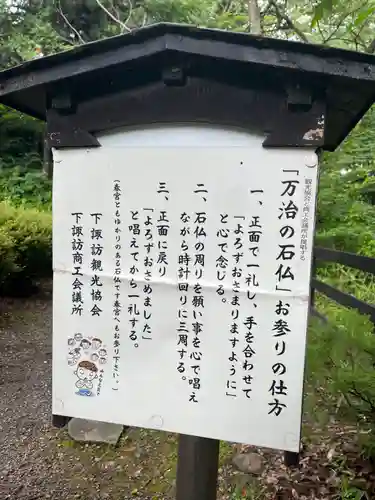 観光協会、商工会議所が提唱する
「万治の石仏」お参りの仕方
一、正面で一礼し、手を合わせて
「よろずおさまりますように」
と心で念じる。
二、石仏の周りを願い事を心で唱え
ながら時計回りに三周する。
三、正面に戻り
「よろずおさめました」
と唱えてから一礼する。
(春宮ともゆかりのある石仏です春宮へもお参り下さい。)
下諏訪観光協会
下諏訪商工会議所